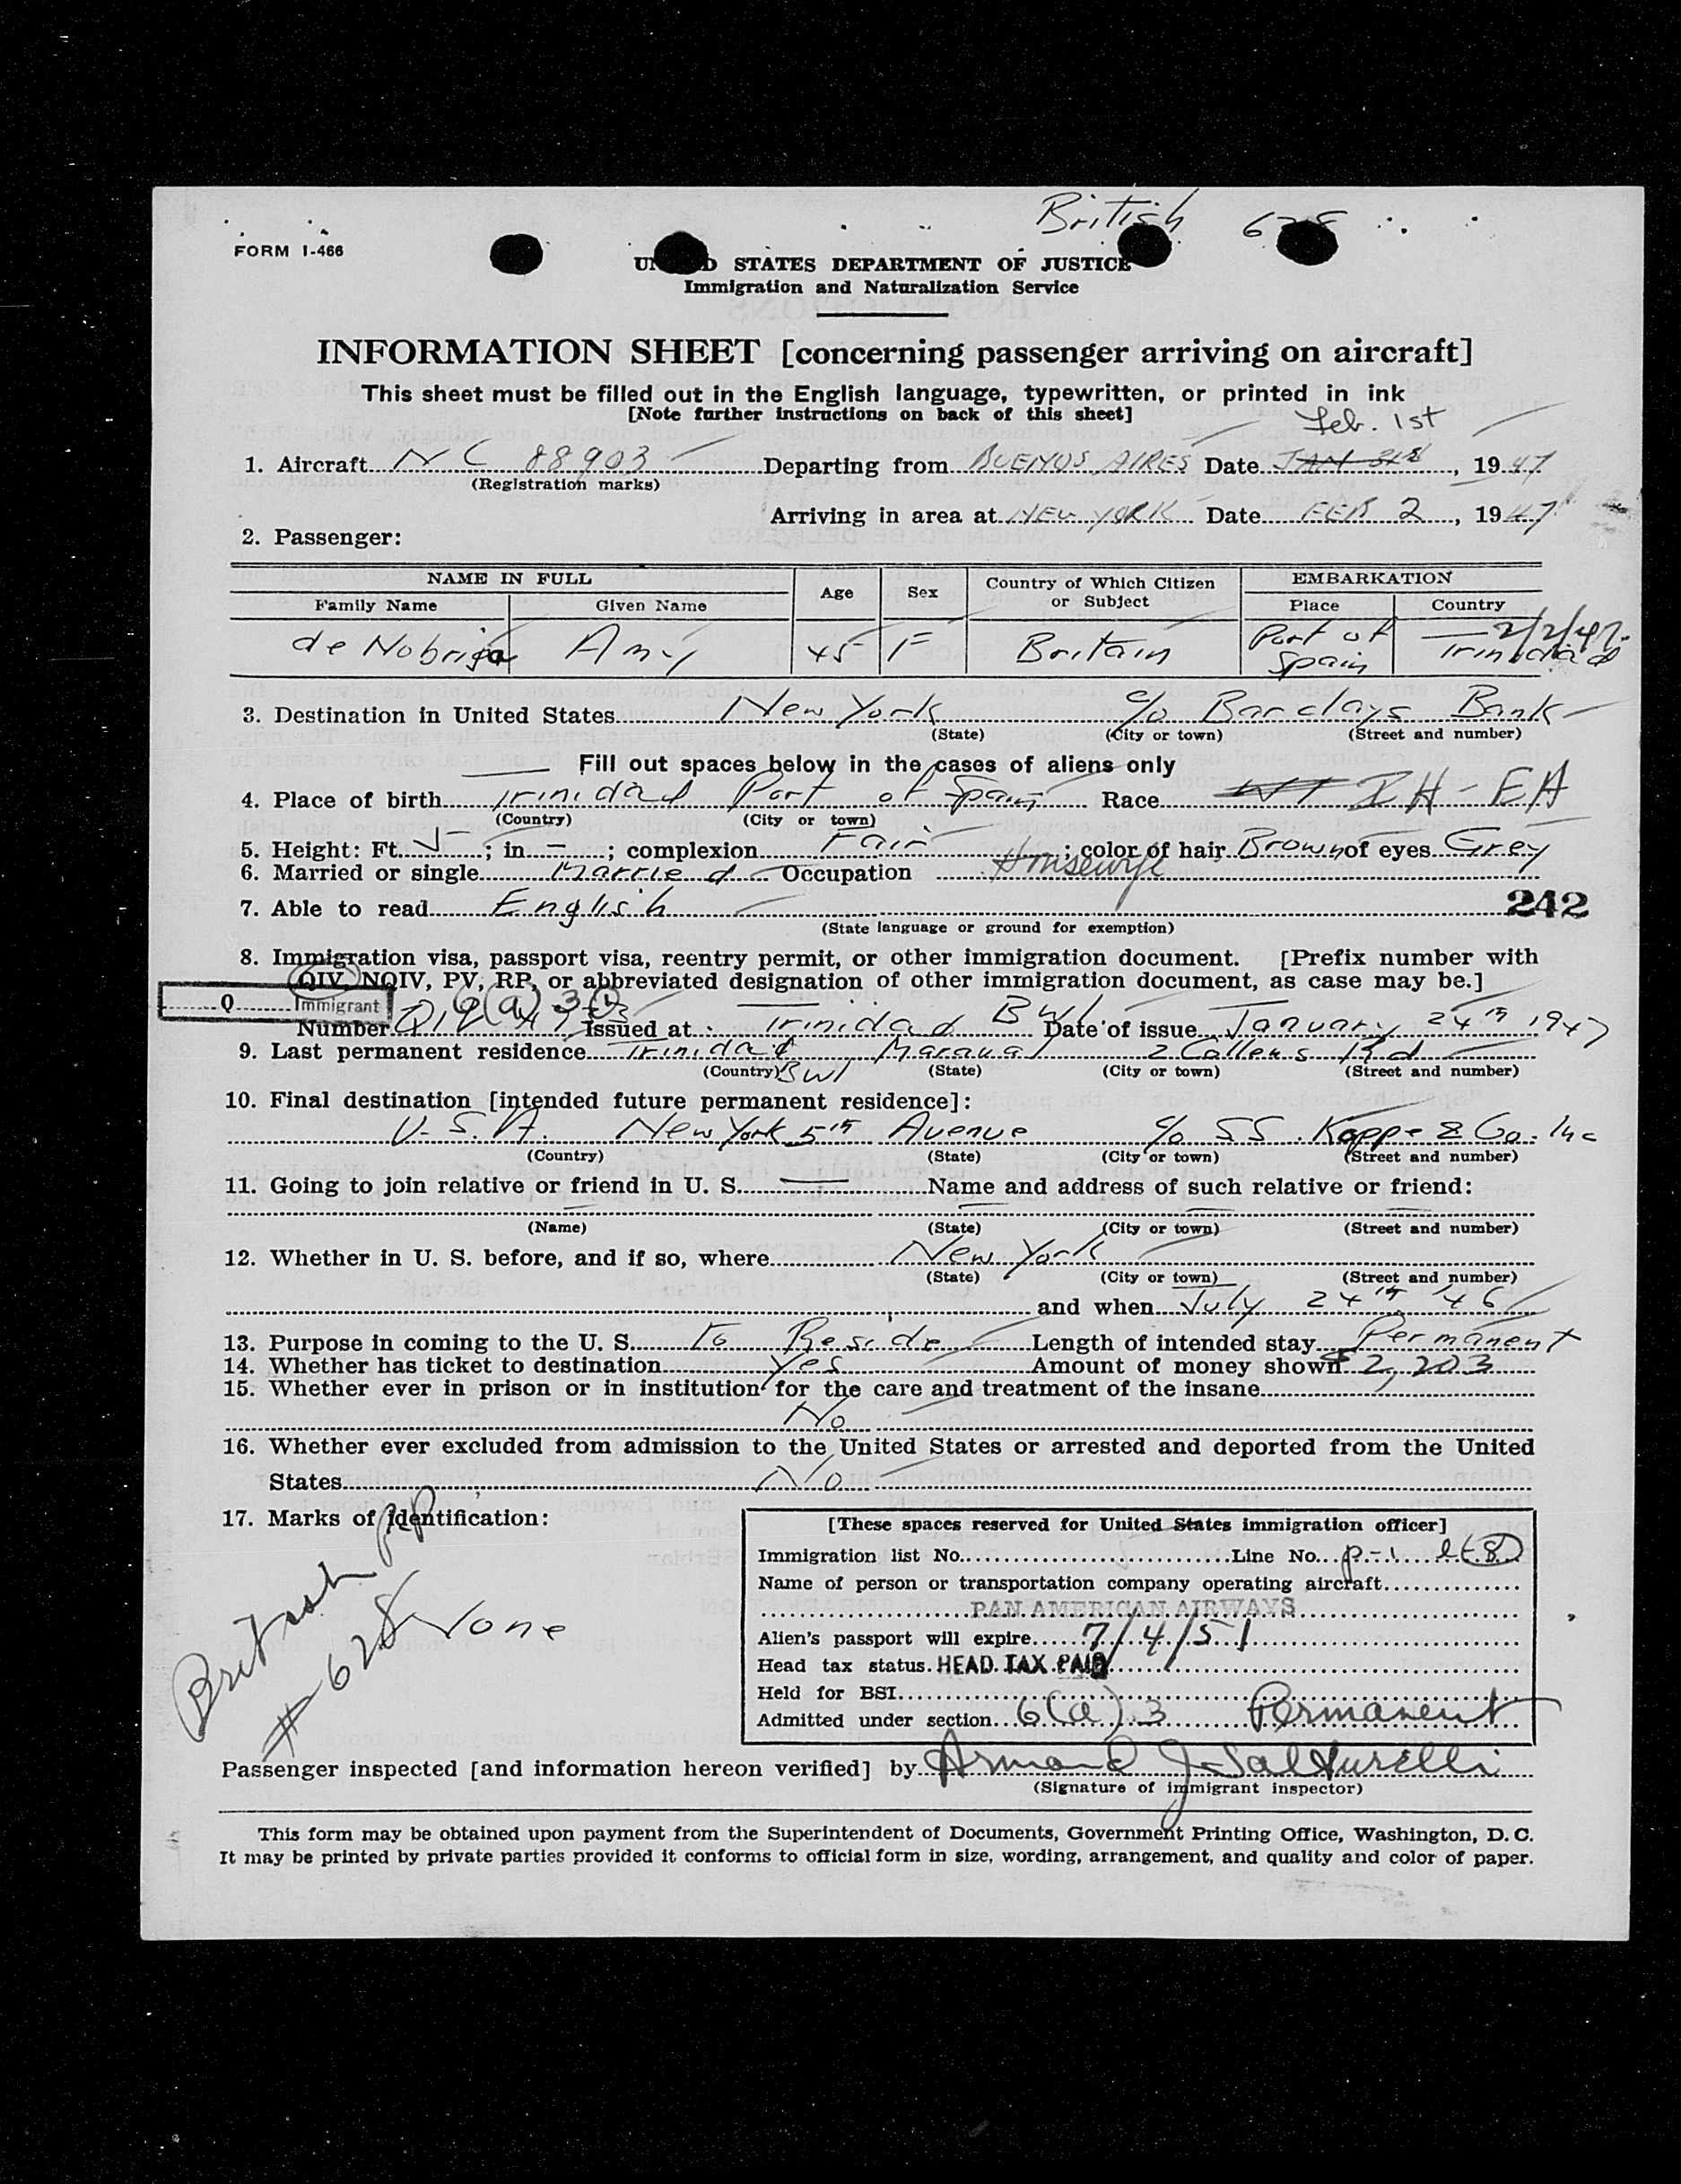 British 628
FORM I-466
UNITED STATES DEPARTMENT OF JUSTICE
Immigration and Naturalization Service
INFORMATION SHEET [concerning passenger arriving on aircraft]
This sheet must be filled out in the English language, typewritten, or printed in ink
[Note further instructions on back of this sheet]
Feb. 1st
1. Aircraft NC 88903 Departing from BUENOS AIRES Date JAN 31st, 1947
(Registration marks)
Arriving in area at NEW YORK Date FEB 2, 1947
2. Passenger:
NAME IN FULL Age Sex Country of Which Citizen or Subject EMBARKATION
Family Name Given Name Place Country
2/2/47
de Nobriga Amy 45 F Britain Port of Spain Trinidad
3. Destination in United States New York c/o Barclays Bank
(State) (City or town) (Street and number)
Fill out spaces below in the cases of aliens only
4. Place of birth Trinidad Port of Spain Race WT IH-EA
(Country) (City or town)
5. Height: Ft. 5; in. -; complexion Fair; color of hair Brown of eyes Grey
6. Married or single Married Occupation Housewife
7. Able to read English
242
(State language or ground for exemption)
8. Immigration visa, passport visa, reentry permit, or other immigration document. [Prefix number with
QIV, NQIV, PV, RP, or abbreviated designation of other immigration document, as case may be.]
Q Immigrant 6(a)3 1
Number Issued at Trinidad BWI Date of issue January 24th 1947
9. Last permanent residence Trinidad Maraval 2 Collens Rd
(Country) BWI (State) (City or town) (Street and number)
10. Final destination [intended future permanent residence]:
U.S.A. New York 5th Avenue c/o SS. Koppe & Co. Inc
(Country) (State) (City or town) (Street and number)
11. Going to join relative or friend in U. S. Name and address of such relative or friend:
(Name) (State) (City or town) (Street and number)
12. Whether in U. S. before, and if so, where New York
(State) (City or town) (Street and number)
and when July 24th '46
13. Purpose in coming to the U. S. To Reside Length of intended stay Permanent
14. Whether has ticket to destination Yes Amount of money shown $2,203
15. Whether ever in prison or in institution for the care and treatment of the insane
No
16. Whether ever excluded from admission to the United States or arrested and deported from the United
States No
17. Marks of identification:
None
British PP
#628
[These spaces reserved for United States immigration officer]
Immigration list No. Line No. p-1 l(8)
Name of person or transportation company operating aircraft
PAN AMERICAN AIRWAYS
Alien's passport will expire 7/4/51
Head tax status. HEAD TAX PAID
Held for BSI
Admitted under section 6(a)3 Permanent
Passenger inspected [and information hereon verified] by Armand J. Salturelli
(Signature of immigrant inspector)
This form may be obtained upon payment from the Superintendent of Documents, Government Printing Office, Washington, D. C.
It may be printed by private parties provided it conforms to official form in size, wording, arrangement, and quality and color of paper.